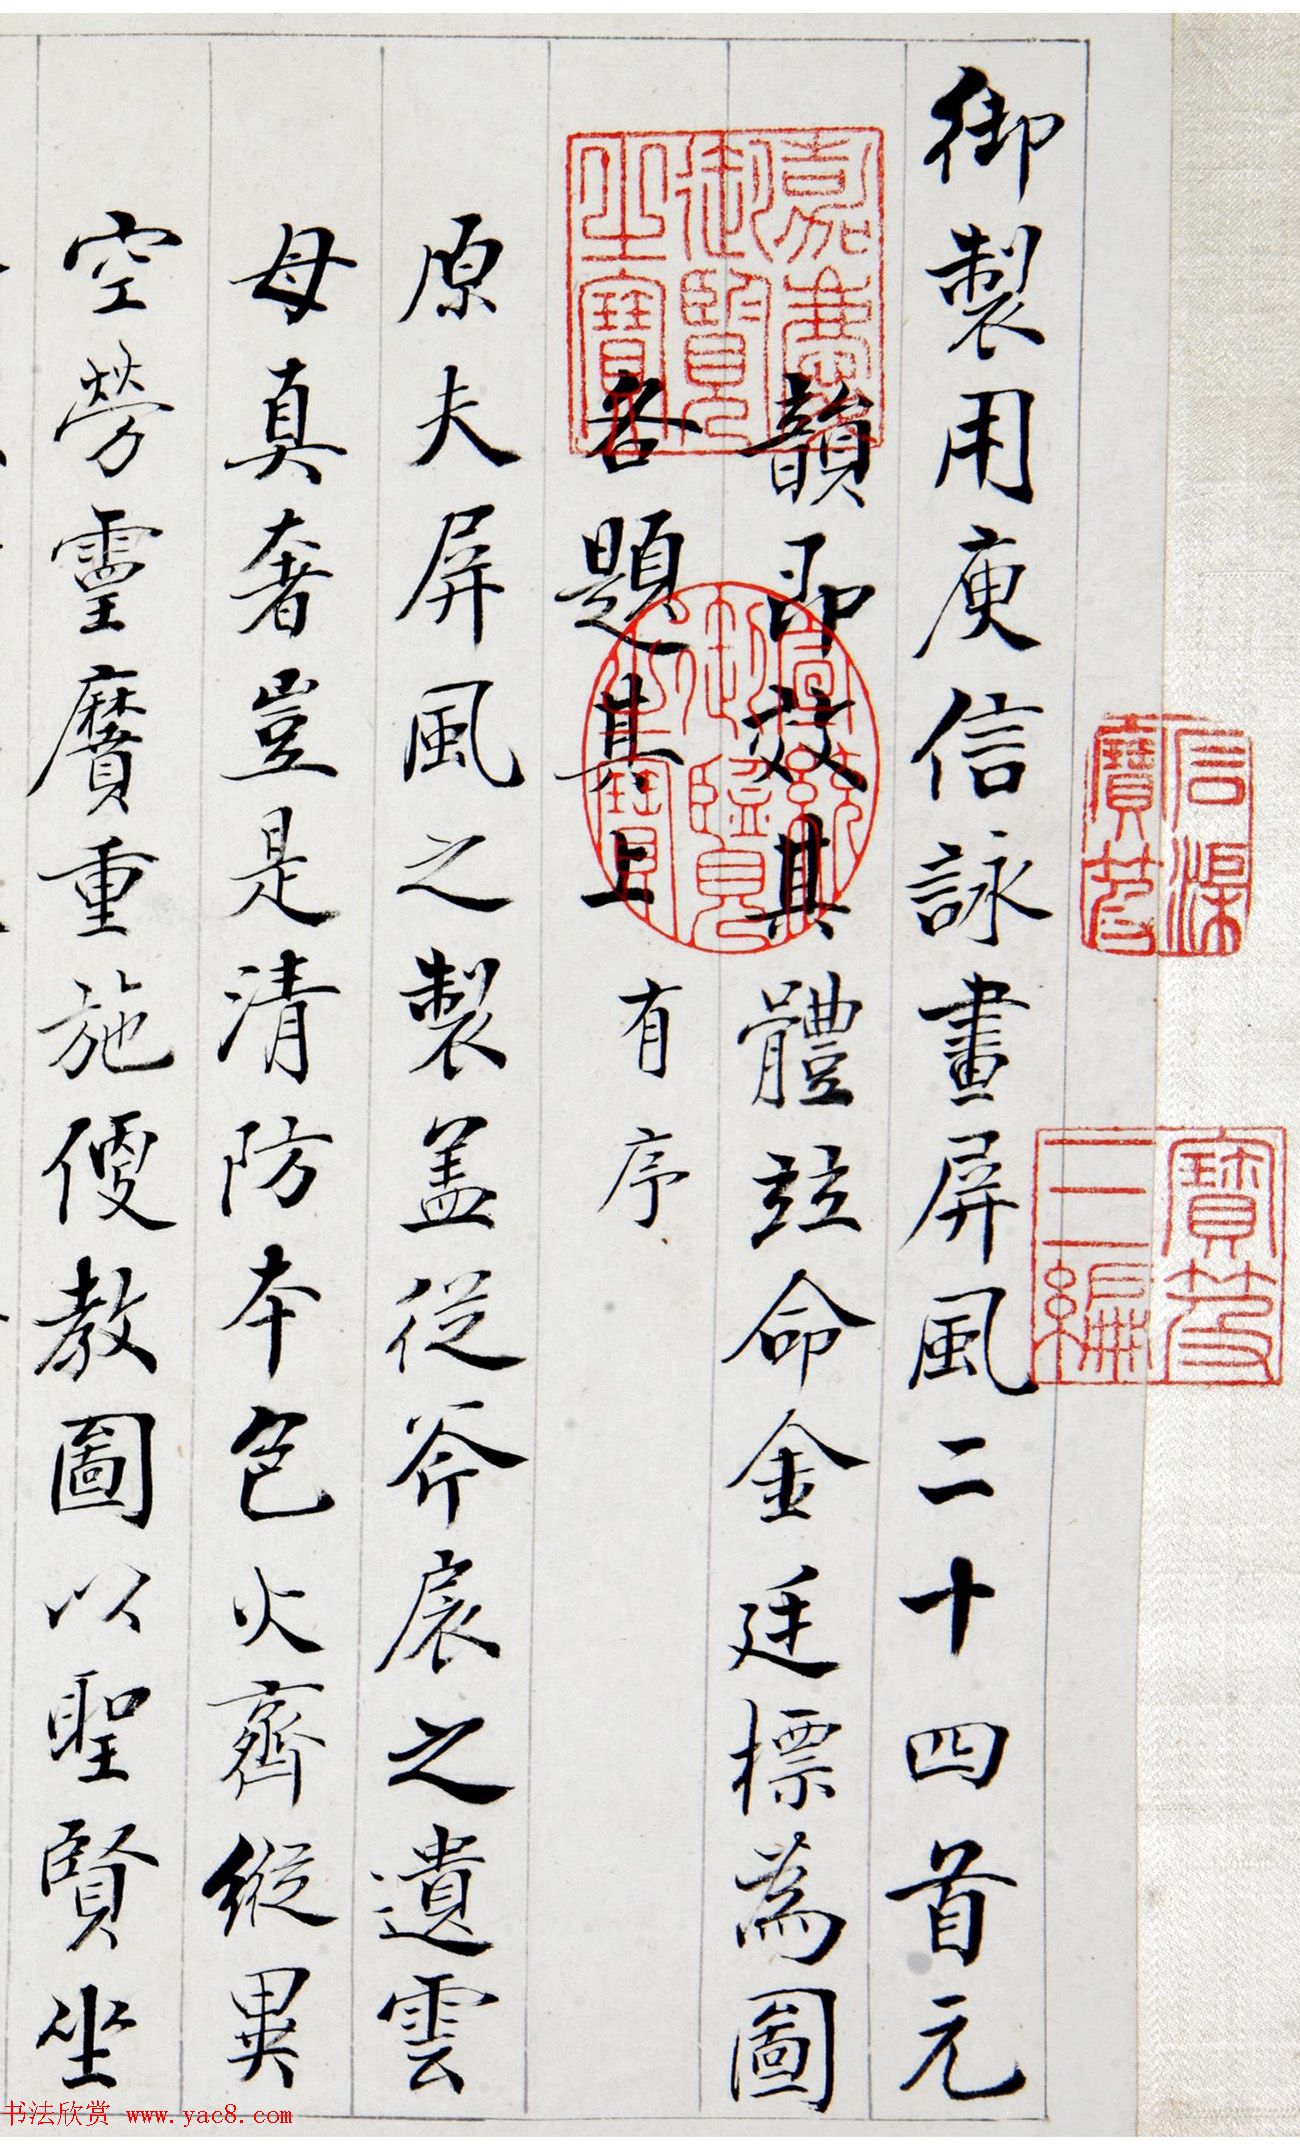 御製用庾信詠畫屏風二十四首元
韻即效其體並命金廷標為圖
各題其上有序
原夫屏風之製盖從斧扆之遺雲
母真奢豈是清防本色火齊縱異
空勞靈贗重施便教圖以聖賢坐
嘉慶御覽之寶
宣統御覽之寶
石渠寶笈
寶笈三編
书法欣赏 www.yac8.com